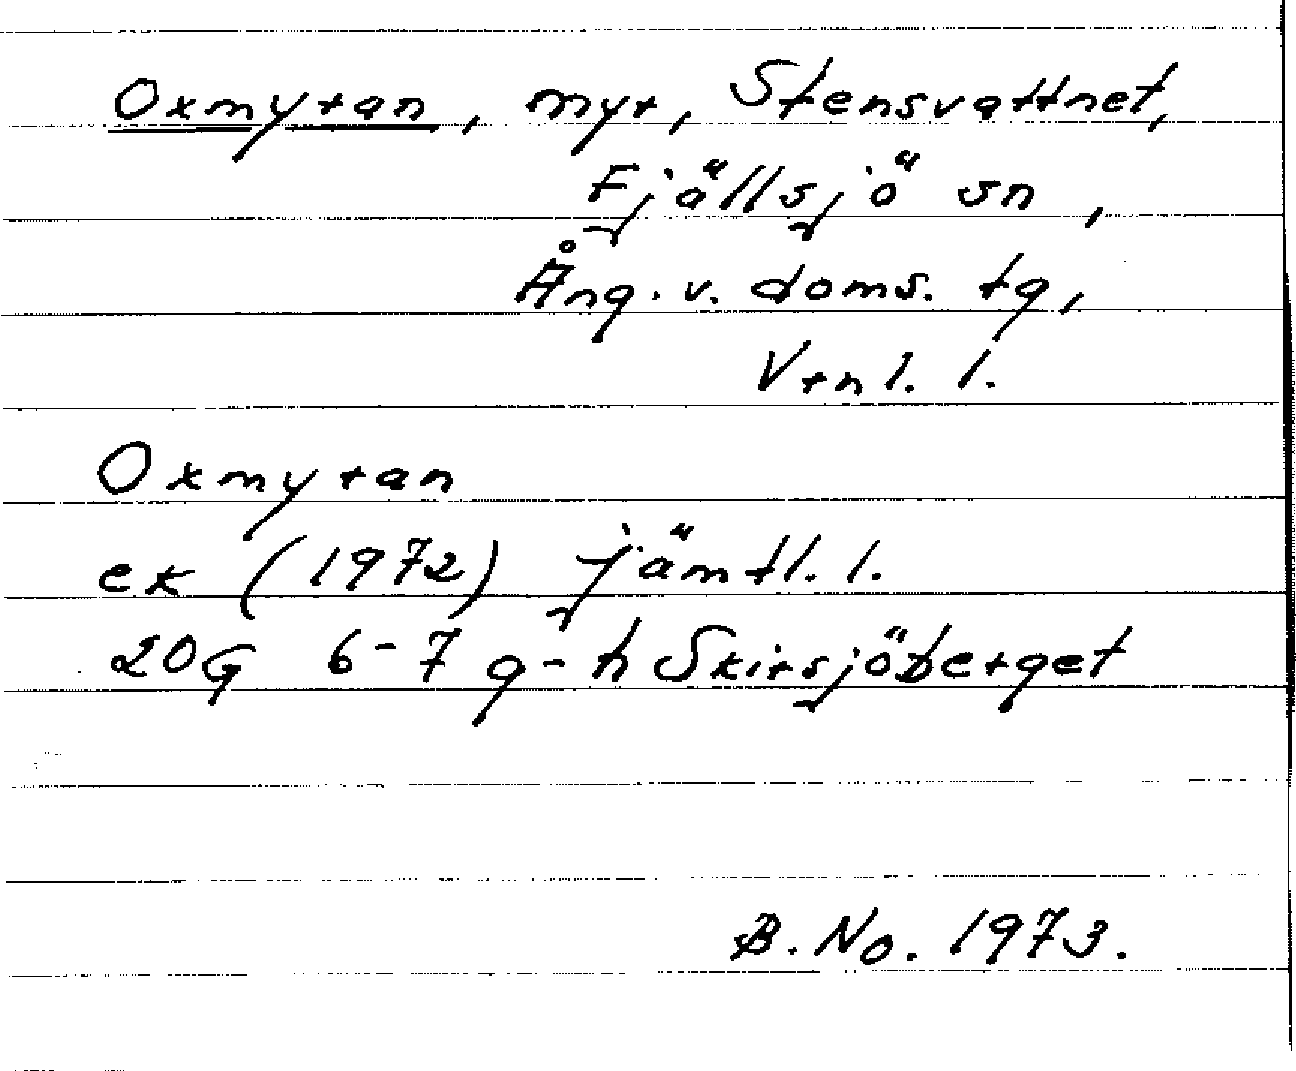 Oxmyran, myr, Stensvattnet,
Fjällsjö sn,
Ång. v. doms. tg,
Vrnl. l.
Oxmyran
ek (1972) jämtl. l.
20G 6-7 g-h Skirsjöberget
B. No. 1973.